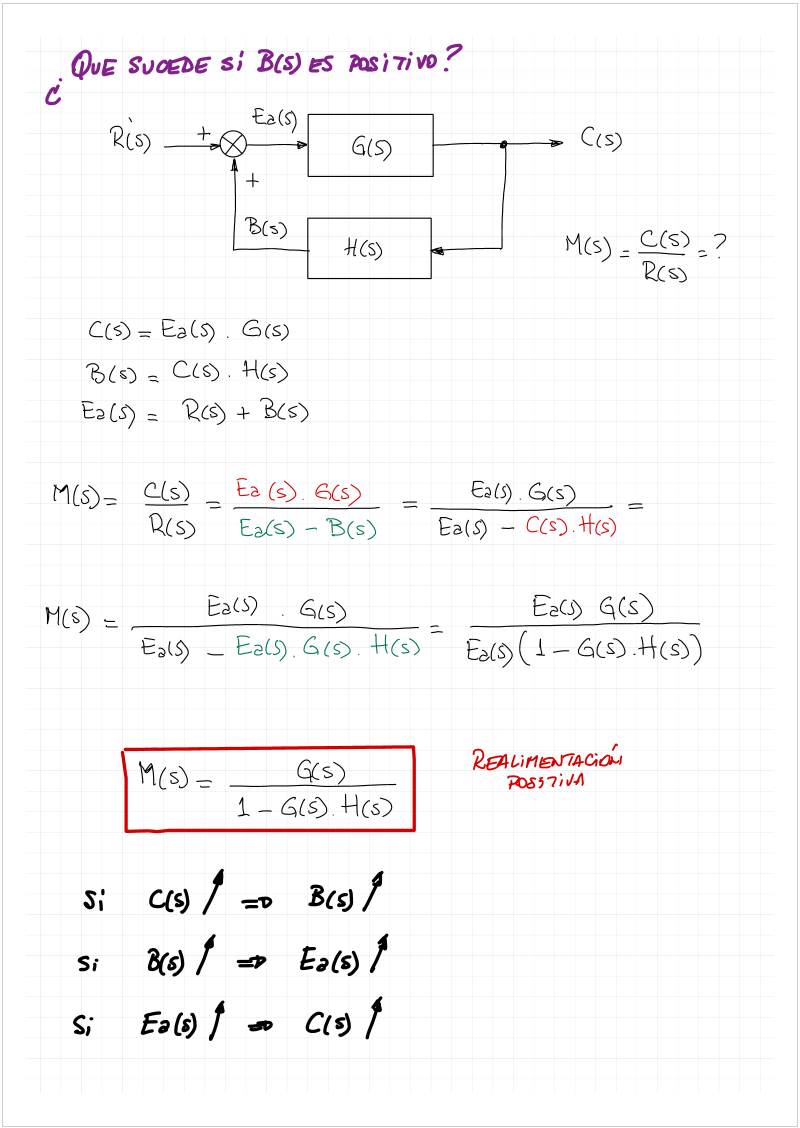 ¿ QUE SUCEDE Si B(s) ES POSITIVO?
R(s) + Ea(s) G(s) C(s)
+
B(s) H(s)
M(s) = C(s) / R(s) = ?
C(s) = Ea(s) . G(s)
B(s) = C(s) . H(s)
Ea(s) = R(s) + B(s)
M(s) = C(s) / R(s) = Ea(s) . G(s) / Ea(s) - B(s) = Ea(s) . G(s) / Ea(s) - C(s) . H(s) =
M(s) = Ea(s) . G(s) / Ea(s) - Ea(s) . G(s) . H(s) = Ea(s) G(s) / Ea(s) (1 - G(s) . H(s))
M(s) = G(s) / 1 - G(s) . H(s)
REALiMENTACIÓN
POSSTIVA
Si C(s) ↗ => B(s) ↗
Si B(s) ↗ => Ea(s) ↗
Si Ea(s) ↗ => C(s) ↗